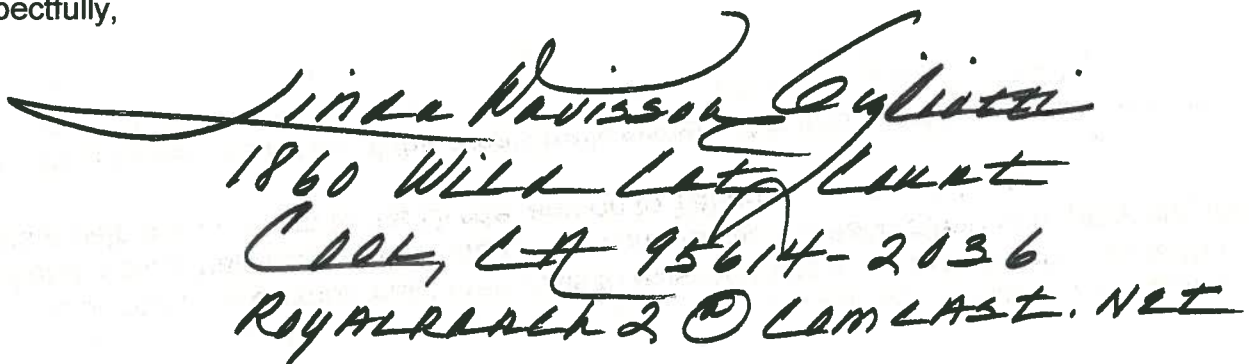 pectfully,
Linda Davisson Gigliotti
1860 Wild Cat Court
Cool, CA 95614-2036
RoyalRoach2@comcast.net